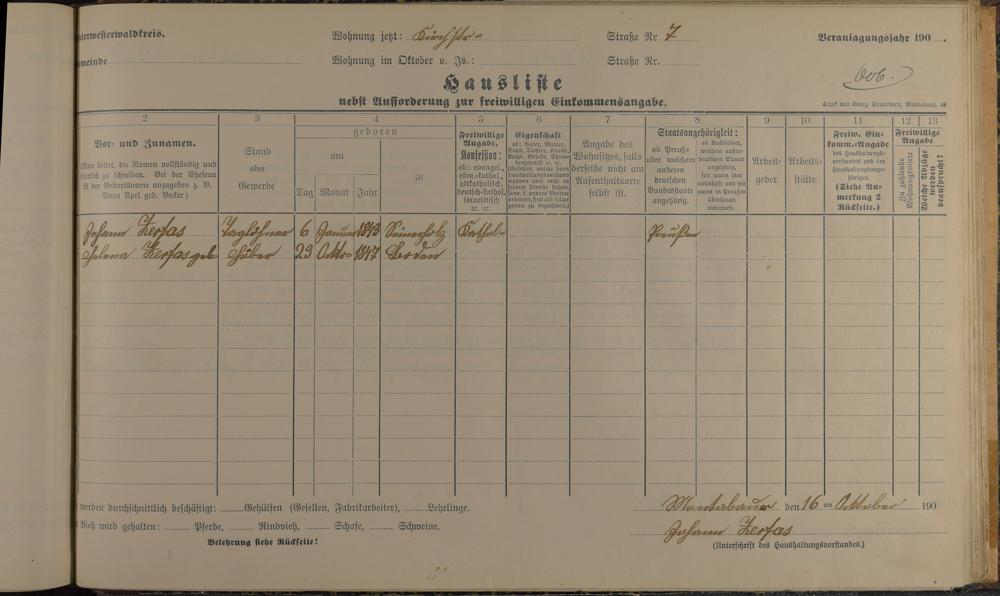 nterwesterwaldkreis.
Wohnung jetzt: Kirchstr= Straße Nr. 7
Veranlagungsjahr 190
emeinde
Wohnung im Oktober v. Js.: Straße Nr.
606.
Hausliste
nebst Aufforderung zur freiwilligen Einkommensangabe.
Druck von Georg Sauerborn, Montabaur.
2 3 4 5 6 7 8 9 10 11 12 13
Vor- und Zunamen.
Man bittet, die Namen vollständig und
leserlich zu schreiben. Bei der Ehefrau
ist der Geburtsname anzugeben z. B.
Anna Apel geb. Becker)
Stand
oder
Gewerbe
geboren
am
zu
Tag Monat Jahr
Freiwillige
Angabe.
Konfession:
ob: evangel.,
röm.-kathol.,
altkatholisch,
deutsch-kathol.
israelitisch
ꝛc. ꝛc.
Eigenschaft
ob: Vater, Mutter,
Sohn, Tochter, Knecht,
Magd, Geselle,
Angabe des
Wohnsitzes, falls
derselbe nicht am
Aufenthaltsorte
selbst ist.
Staatsangehörigkeit:
ob Preuße
oder welchem
anderen
deutschen
Bundesstaate
angehörig.
ob Ausländer,
welchem außer-
deutschen Staate
angehörig,
seit wann hier
wohnhaft und seit
wann in Preußen
überhaupt
wohnhaft.
Arbeit-
geber
Arbeits-
stätte
Freiw. Ein-
komm.-Angabe
des Haushaltungs-
vorstandes und der
Haushaltungsange-
hörigen.
(Siehe An-
merkung 2
Rückseite.)
Freiwillige
Angabe
Zu zahlende
Wohnungsmiete
Welche Abzüge
werden
beansprucht?
Johann Zerfas Taglöhner 6 Januar 1843 Kathol= Preuße
Helena Zerfas geb. Huber 23 Okto= 1847 Boden
werden durchschnittlich beschäftigt: Gehülfen (Gesellen, Fabrikarbeiter), Lehrlinge.
Vieh wird gehalten: Pferde, Rindvieh, Schafe, Schweine.
Belehrung siehe Rückseite!
Montabaur den 16 ten Oktober 190
Johann Zerfas
(Unterschrift des Haushaltungsvorstandes.)